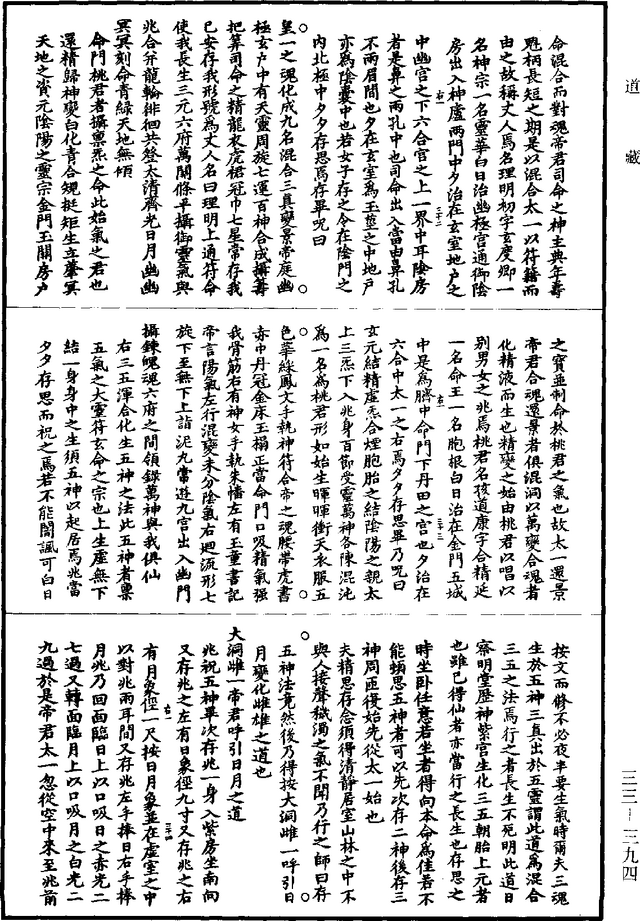 道藏
命混合而對魂帝君司命之神主典年壽
魁柄長短之期是以混合太一以符籍而
由之故稱丈人焉名理明初字玄度卿一
名神宗一名靈華白日治幽極宮通御陰
房出入神廬兩門中夕治在玄室地戶之
中幽宮之下六合宮之上一界中耳陰房
者是鼻之兩孔中也司命出入當由鼻孔
不兩眉間也夕在玄室為玉莖之中地戶
亦為陰囊中也若女子存之令在陰門之
內北極中夕夕存思焉存畢呪曰
皇一之魂化成九名混合三真變景帝庭幽
極玄戶中有天靈周旋七運百神合成攝籌
把筭司命之精龍衣虎裙冠巾七星常存我
已安存我形號為丈人名曰理明上通符命
使我長生三元六府萬關條平攝御靈氣與
兆合并龍輪徘徊共登太清齊光日月幽幽
冥冥刻命青綠天地無傾
命門桃君者攝稟炁之命此始氣之君也
還精歸神變白化青合規挺矩生立肇冥
天地之資元陰陽之靈宗金門玉關房戶
之寶並制命於桃君之氣也故太一還景
帝君合魂還景者俱混洞以萬變合魂者
化精液而生也精變之始由桃君以唱以
別男女之兆焉桃君名孩道康字合精延
一名命王一名胞根白日治在金門五城
中是為臍中命門下丹田之宮也夕治在
六合中太一之右焉夕夕存思畢乃呪曰
玄元結精虛炁合煙胞胎之結陰陽之親太
上三炁下入兆身百節受靈萬神各陳混沌
為一名為桃君形如始生暉暉衝天衣服五
色華綵鳳文手執神符合帝之魂腰帶虎書
赤巾丹冠金床玉榻正當命門口吸精氣強
我骨筋右有神女手執朱幡左有玉童書記
帝言陽氣左行混變未分陰氣右迴流形七
旋下至無下上詣泥丸常遊九宮出入幽門
攝鍊魄魂六府之間領錄萬神與我俱仙
右三五渾合化生五神之法此五神者稟
五氣之大靈符玄命之宗也上生虛無下
結一身身中之生須五神以起居焉兆當
夕夕存思而祝之焉若不能闇諷可白日
按文而修不必夜半要生氣時爾夫三魂
生於五神三真出於五靈謂此道為混合
三五之法焉行之者長生不死明此道日
察明堂歷神紫宮生化三五朝胎上元者
也雖已得仙者亦當行之長生也存思之
時坐臥任意若坐者得向本命為佳若不
能頓思五神者可以先次存二神後存三
神周匝復始先從太一始也
夫精思存念須得清靜居室山林之中不
與人接聲穢濁之氣不聞乃行之師曰存
五神法竟然後乃得按大洞雌一呼引日
月變化雌雄之道也
大洞雌一帝君呼引日月之道
兆祝五神畢次存兆一身入紫房坐南向
又存兆之左有日象徑九寸又存兆之右
有月象徑一尺按日月象並在虛室之中
以對兆兩耳間又存兆左手捧日右手捧
月兆乃回面臨日上以口吸日之赤光二
七過又轉面臨月上以口吸月之白光二
九過於是帝君太一忽從空中來至兆前
三三－三九四